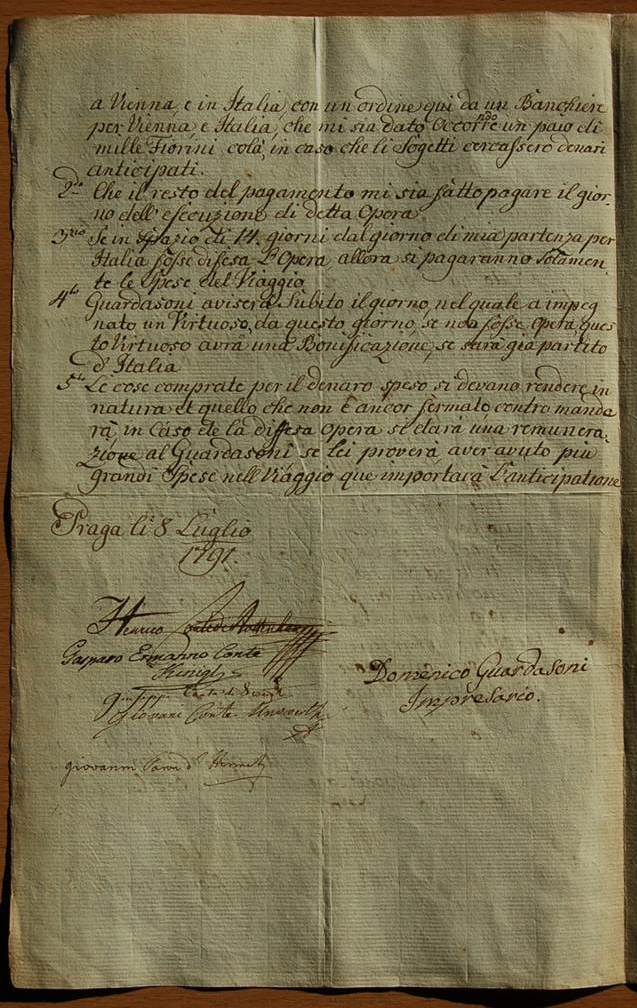 a Vienna, e in Italia, con un ordine qui da un Banchiere
per Vienna, e Italia, che mi sia dato occorrendo un paio di
mille Fiorini colà, in caso che li Sogetti cercassero denari
anticipati.
2do Che il resto del pagamento mi sia fatto pagare il gior-
no dell'esecuzione di detta Opera
3zio Se in spazio di 14. giorni dal giorno di mia partenza per
Italia fosse difesa L'Opera, allora si pagaranno solamen-
te le Spese del Viaggio
4to Guardasoni aviserà Subito il giorno, nel quale a impeg
nato un Virtuoso, da questo giorno, se non fosse Opera, ques
to Virtuoso avrà una Bonificazione, se sarà già partito
d'Italia
5to Le cose comprate per il denaro speso si devano rendere in
natura et quello che non è ancor fermato, contromanda
rà, in Caso de la difesa Opera si darà una remunera-
zione al Guardasoni se Lei proverà aver avuto più
grandi Spese nell Viaggio que importarà L'anticipatione
Praga li 8 Luglio
1791.
Henrico Conte de Rottenhan
Gasparo Ermanno Conte
Künigl
Giuseppe Conte di
Giovani Conte
Domenico Guardasoni
Impresario.
Giovanni